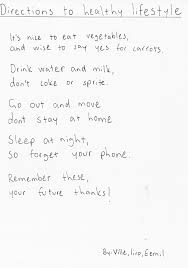 Directions to healthy lifestyle
It's nice to eat vegetables,
and wise to say yes for carrots.
Drink water and milk,
don't coke or sprite.
Go out and move
dont stay at home
Sleep at night,
So forget your phone.
Remember these,
your future thanks!
By: Ville, Iiro, Eemil